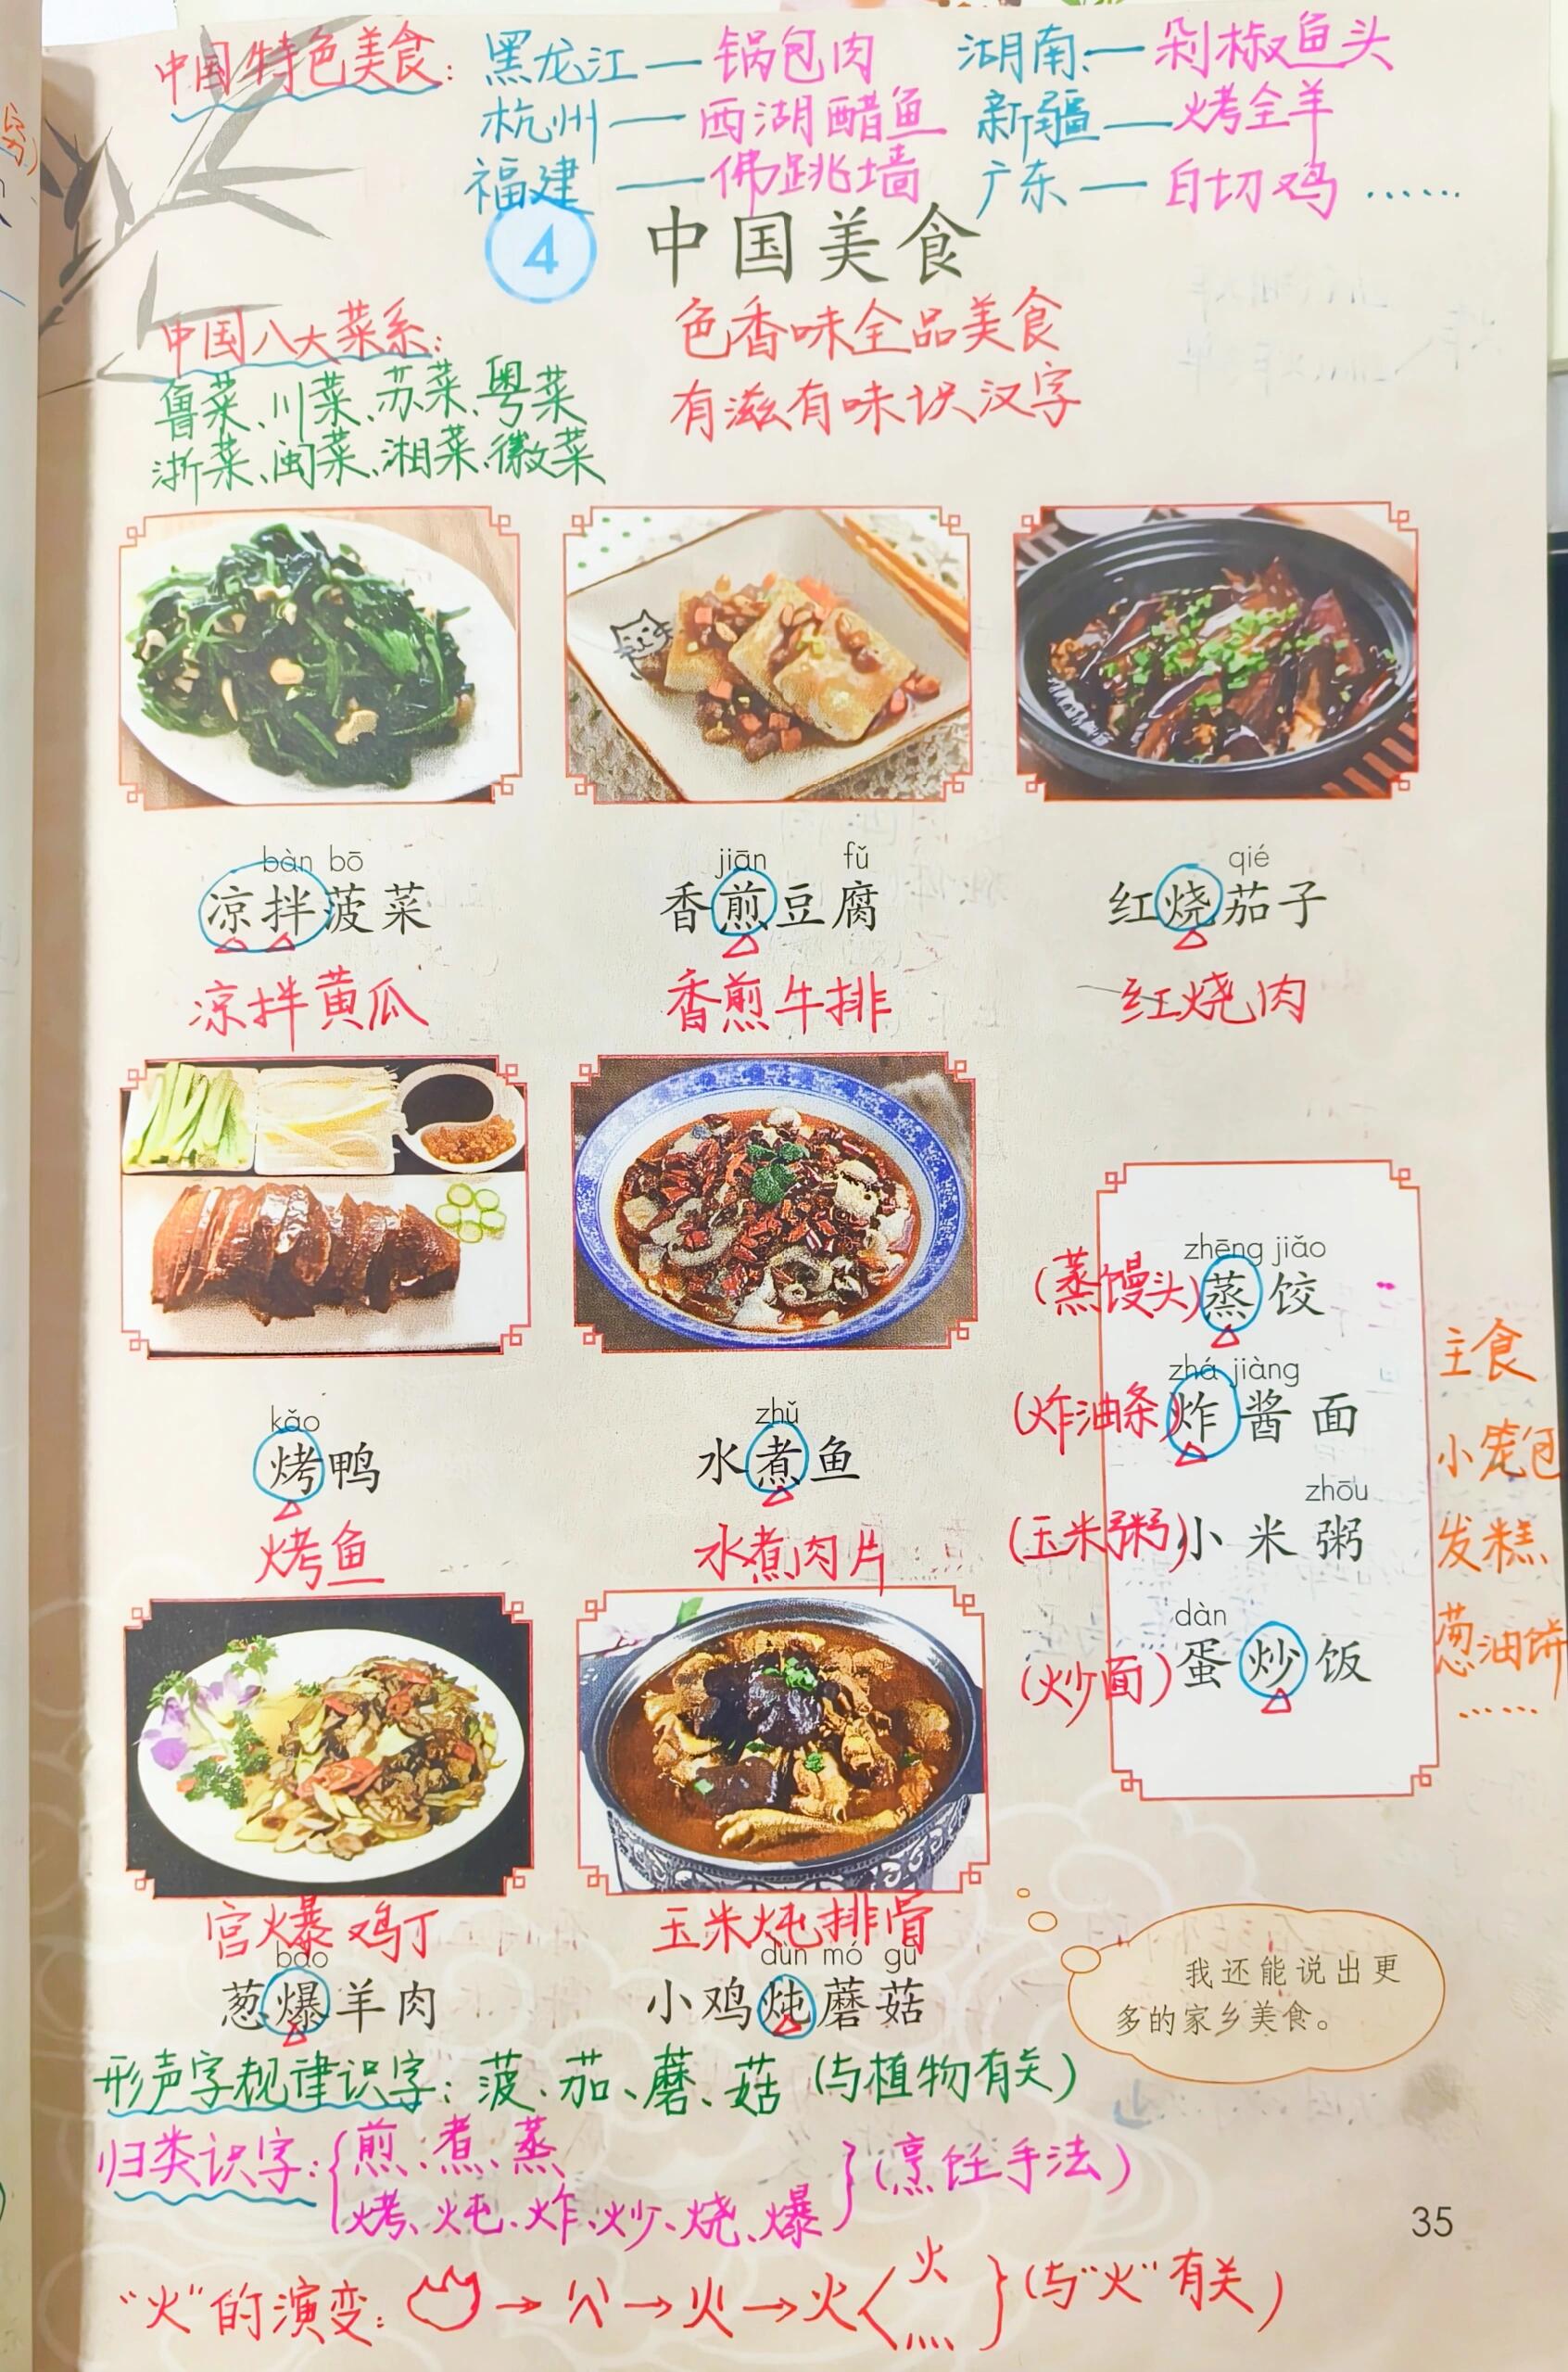 中国特色美食：黑龙江—锅包肉 湖南—剁椒鱼头
杭州—西湖醋鱼 新疆—烤全羊
福建—佛跳墙 广东—白切鸡……
4 中国美食
中国八大菜系：
鲁菜、川菜、苏菜、粤菜
浙菜、闽菜、湘菜、徽菜
色香味全品美食
有滋有味识汉字
bàn bō
凉拌菠菜
凉拌黄瓜
jiān fǔ
香煎豆腐
香煎牛排
qié
红烧茄子
红烧肉
kǎo
烤鸭
烤鱼
zhǔ
水煮鱼
水煮肉片
zhēng jiǎo
(蒸馒头)蒸饺
zhá jiàng
(炸油条)炸酱面
zhōu
(玉米粥)小米粥
dàn
(炒面)蛋炒饭
主食
小笼包
发糕
葱油饼
……
宫爆鸡丁
bào
葱爆羊肉
玉米炖排骨
dùn mó gū
小鸡炖蘑菇
我还能说出更
多的家乡美食。
形声字规律识字：菠、茄、蘑、菇（与植物有关）
归类识字：{煎、煮、蒸
烤、炖、炸、炒、烧、爆}(烹饪手法)
35
“火”的演变：→→火→火〈火 灬}(与“火”有关)